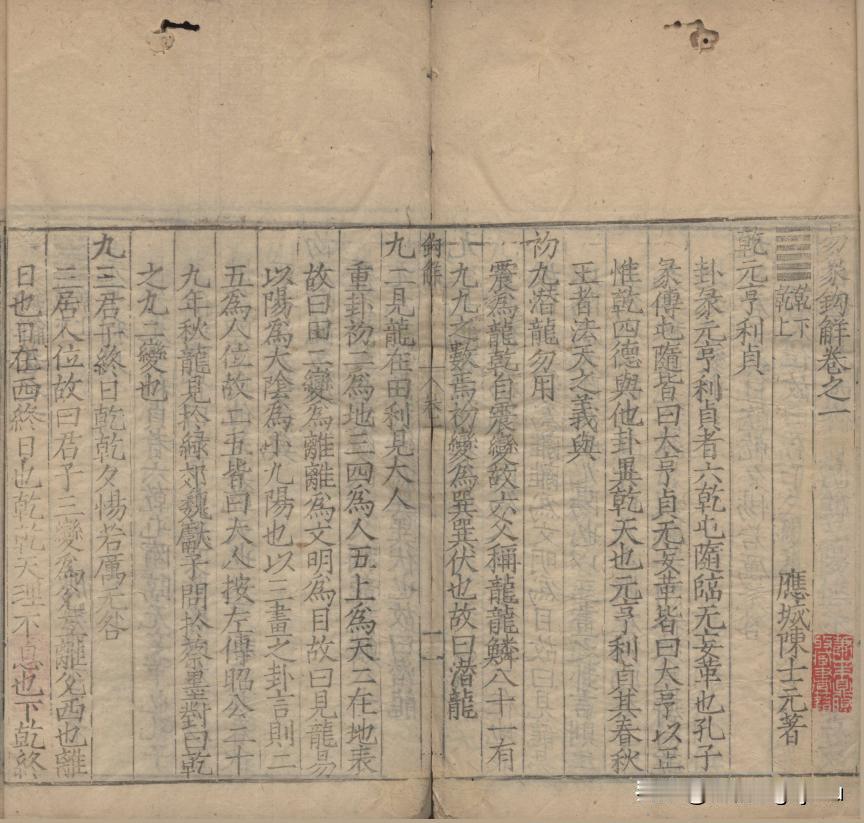 易象鈎解卷之一
應城陳士元著
乾下
乾上
乾元亨利貞
卦彖元亨利貞者六乾屯隨臨无妄革也孔子
彖傳屯隨皆曰大亨貞无妄革皆曰大亨以正
惟乾四德與他卦異乾天也元亨利貞其春秋
王者法天之義與
初九潛龍勿用
震為龍乾自震變故六爻稱龍龍鱗八十一有
九九之數焉初變為巽巽伏也故曰潛龍
鈎解
卷一
一
九二見龍在田利見大人
重卦初二為地三四為人五上為天二在地表
故曰田二變為離離為文明為目故曰見龍易
以陽為大陰為小九陽也以三畫之卦言則二
五為人位故二五皆曰大人按左傳昭公二十
九年秋龍見於絳郊魏獻子問於蔡墨對曰乾
之九二變也
九三君子終日乾乾夕惕若厲无咎
三居人位故曰君子三變為兌互離兌西也離
日也日在西終日也乾乾天理不息也下乾終